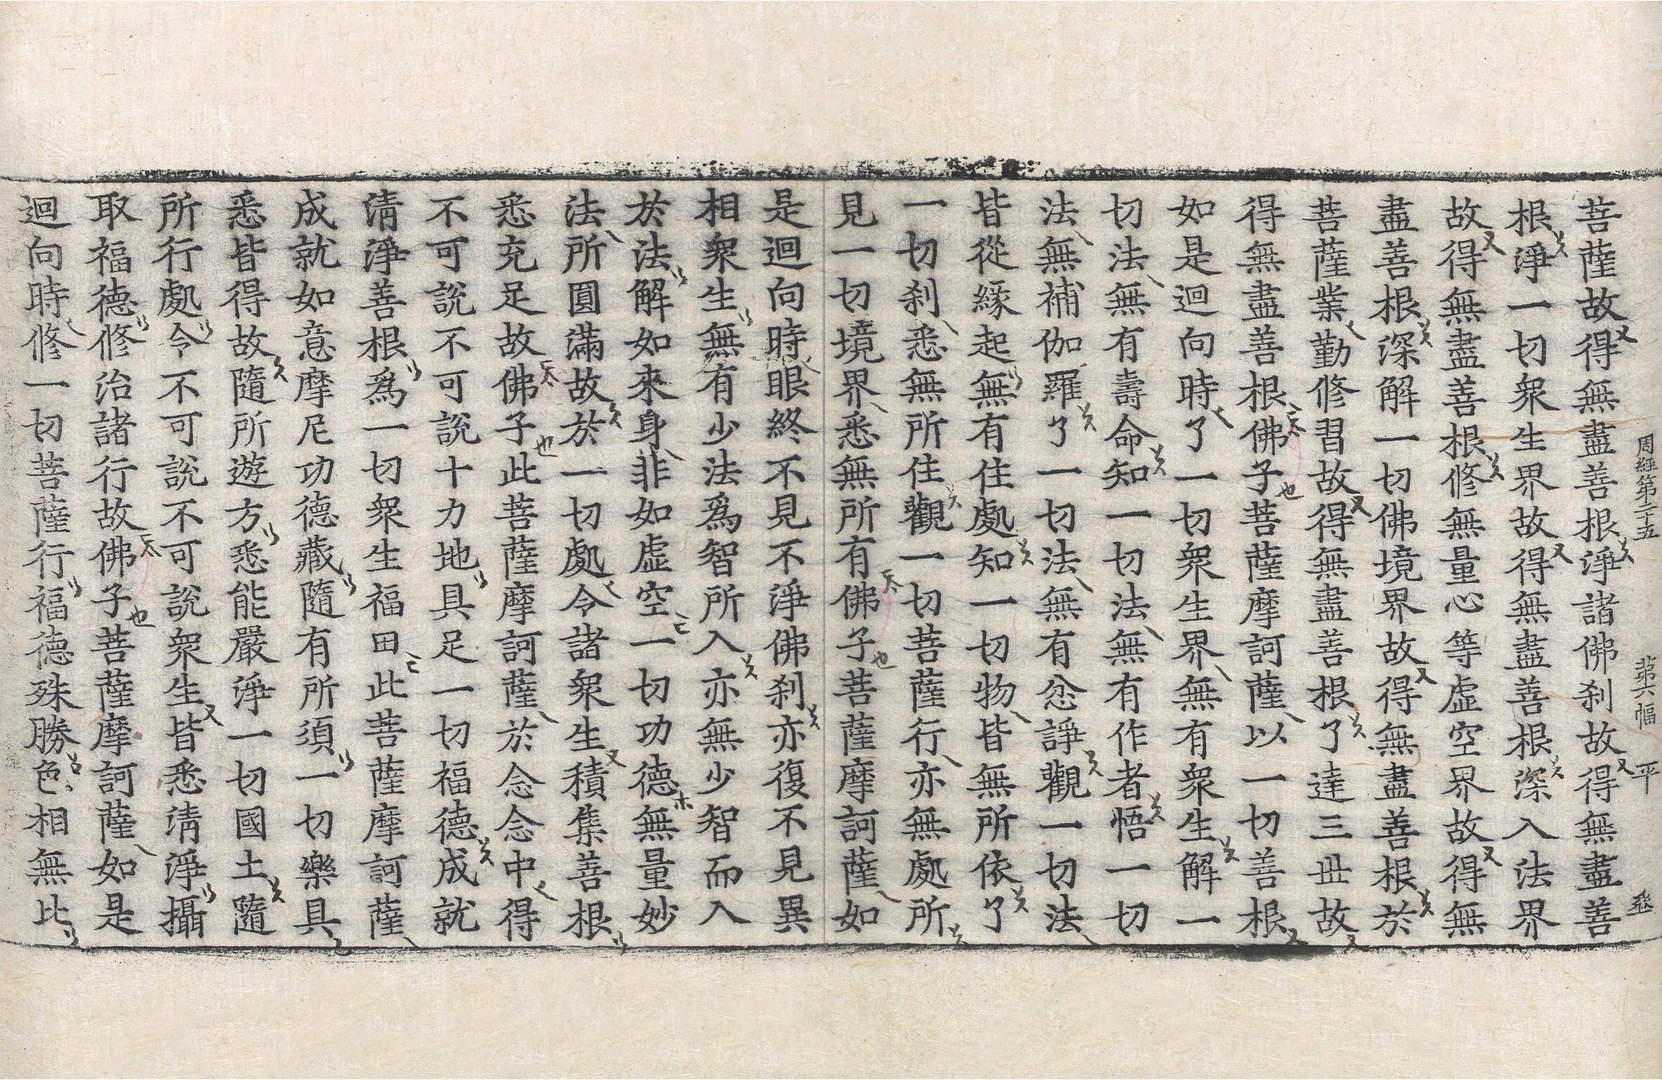 周經第二十五 第六幅 平
菩薩故得無盡善根淨諸佛刹故得無盡善
根淨一切衆生界故得無盡善根深入法界
故得無盡善根修無量心等虛空界故得無
盡善根深解一切佛境界故得無盡善根於
菩薩業勤修習故得無盡善根了達三世故
得無盡善根佛子菩薩摩訶薩以一切善根
如是迴向時了一切衆生界無有衆生解一
切法無有壽命知一切法無有作者悟一切
法無補伽羅了一切法無有忿諍觀一切法
皆從緣起無有住處知一切物皆無所依了
一切刹悉無所住觀一切菩薩行亦無處所
見一切境界悉無所有佛子菩薩摩訶薩如
是迴向時眼終不見不淨佛刹亦復不見異
相衆生無有少法爲智所入亦無少智而入
於法解如來身非如虛空一切功德無量妙
法所圓滿故於一切處令諸衆生積集善根
悉充足故佛子此菩薩摩訶薩於念念中得
不可說不可說十力地具足一切福德成就
清淨善根爲一切衆生福田此菩薩摩訶薩
成就如意摩尼功德藏隨有所須一切樂具
悉皆得故隨所遊方悉能嚴淨一切國土隨
所行處令不可說不可說衆生皆悉清淨攝
取福德修治諸行故佛子菩薩摩訶薩如是
迴向時修一切菩薩行福德殊勝色相無比